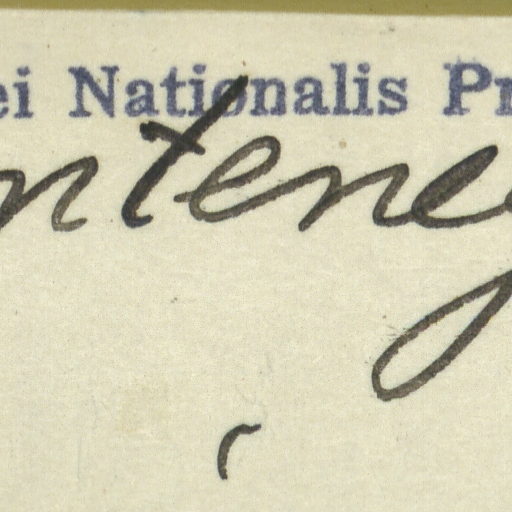 ei Nationalis Pr
nteneg